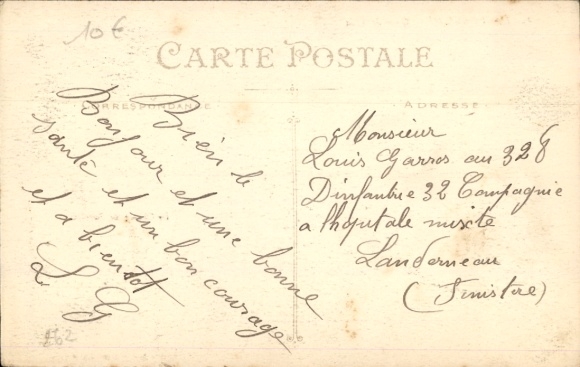 10 €
CARTE POSTALE
CORRESPONDANCE
ADRESSE
Bien le
Bonjour et une bonne
santé et un bon courage
et a bientot
L G
Monsieur
Louis Garros au 328
Dinfantrie 32 Compagnie
a lhopitale mixte
Landerneau
(Finistere)